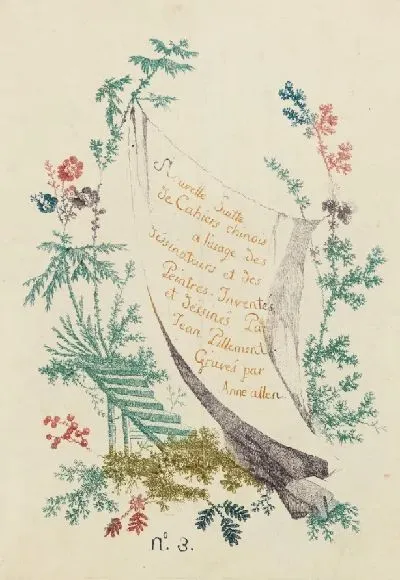 Nouvelle Suitte
De Cahiers chinois
a l'usage des
Dessinateurs et des
Peintres. Inventés
et Dessinés Par
Jean Pillement.
Gravés par
Anne allen.
nº. 3.